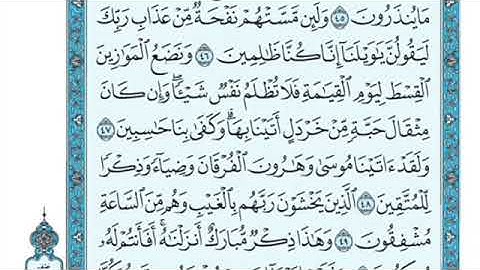 مَا يُنذَرُونَ ٤٥ وَلَئِن مَّسَّتْهُمْ نَفْحَةٌ مِّنْ عَذَابِ رَبِّكَ
لَيَقُولُنَّ يَٰوَيْلَنَآ إِنَّا كُنَّا ظَٰلِمِينَ ٤٦ وَنَضَعُ الْمَوَٰزِينَ
الْقِسْطَ لِيَوْمِ الْقِيَٰمَةِ فَلَا تُظْلَمُ نَفْسٌ شَيْـًٔا وَإِن كَانَ
مِثْقَالَ حَبَّةٍ مِّنْ خَرْدَلٍ أَتَيْنَا بِهَا وَكَفَىٰ بِنَا حَٰسِبِينَ ٤٧
وَلَقَدْ ءَاتَيْنَا مُوسَىٰ وَهَٰرُونَ الْفُرْقَانَ وَضِيَآءً وَذِكْرًا
لِّلْمُتَّقِينَ ٤٨ الَّذِينَ يَخْشَوْنَ رَبَّهُم بِالْغَيْبِ وَهُم مِّنَ السَّاعَةِ
مُشْفِقُونَ ٤٩ وَهَٰذَا ذِكْرٌ مُّبَارَكٌ أَنزَلْنَٰهُ أَفَأَنتُمْ لَهُۥ